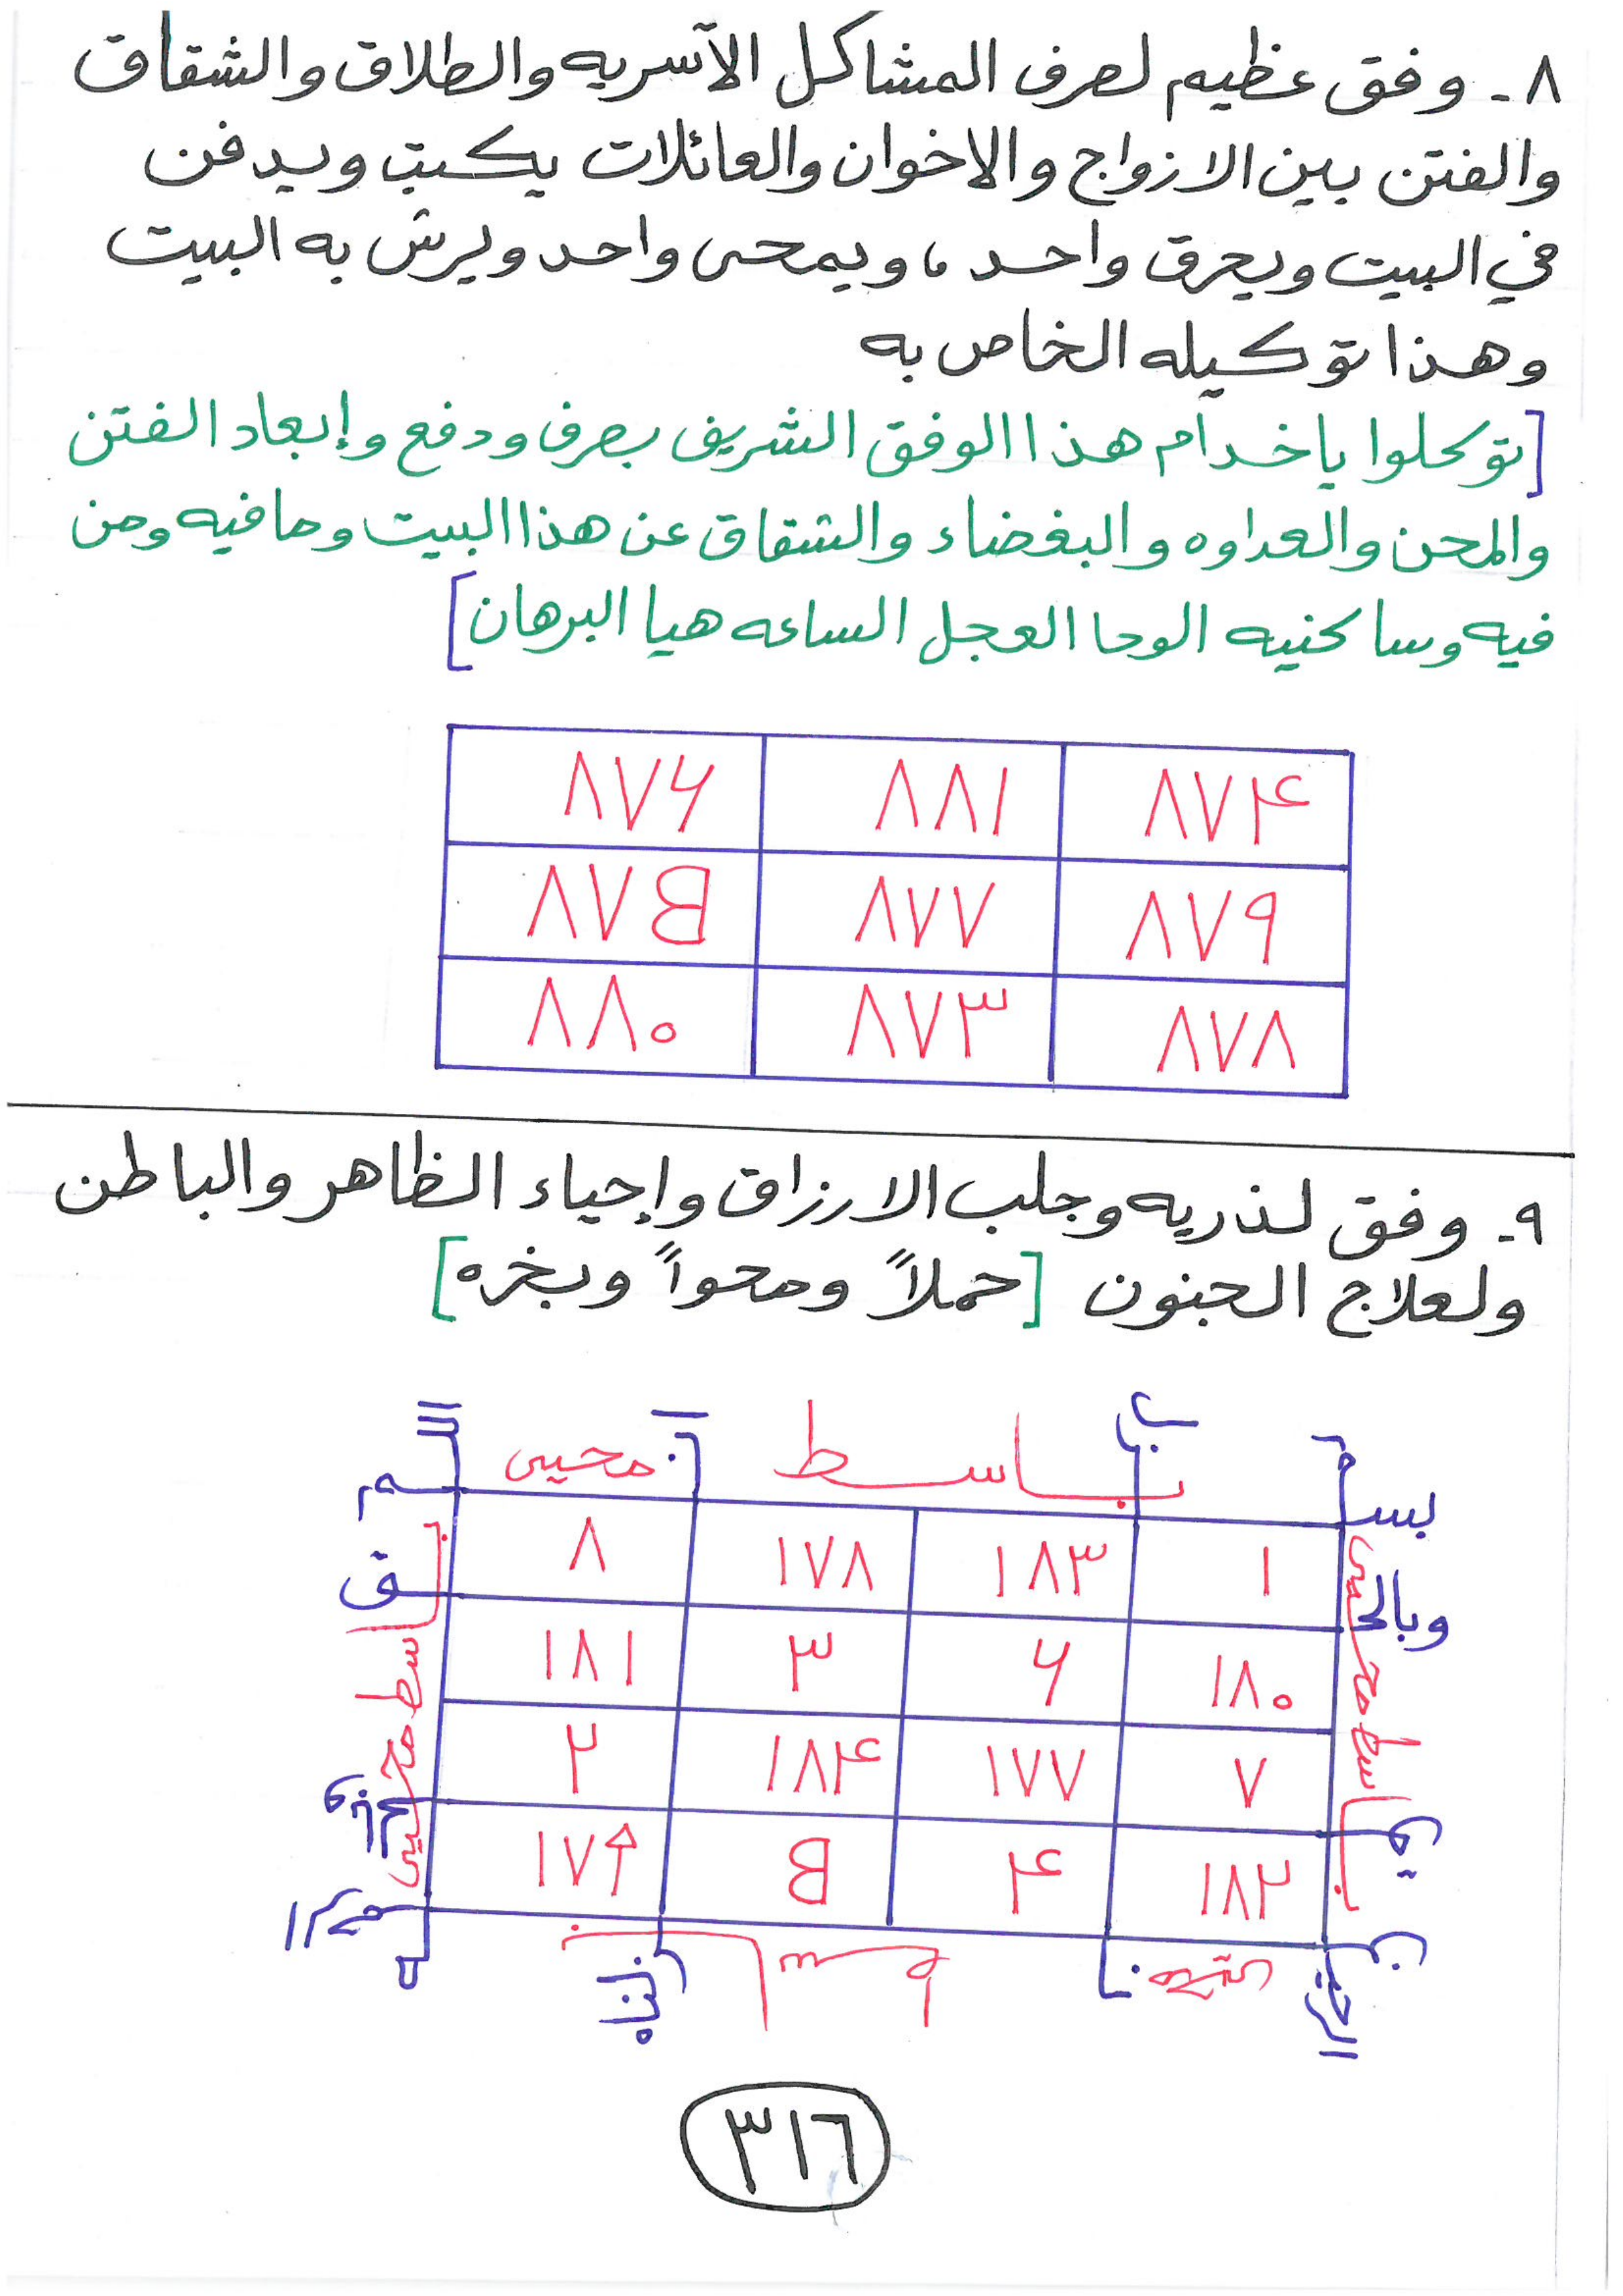 ٨- وفق عظيم لصرف المشاكل الآسريه والطلاق والشقاق
والفتن بين الازواج والاخوان والعائلات يكتب ويدفن
في البيت ويحرق واحد ، ويمحى واحد ويرش به البيت
وهذا توكيله الخاص به
[توكلوا ياخدام هذا الوفق الشريف بصرف ودفع وإبعاد الفتن
والمحن والعداوه والبغضاء والشقاق عن هذا البيت ومافيه ومن
فيه وساكنيه الوحا العجل الساعه هيا البرهان]
٨٧۴ ٨٨١ ٨٧۶
٨٧٩ ٨٧٧ ٨٧B
٨٧٨ ٨٧٣ ٨٨٠
٩- وفق لذريه وجلب الارزاق وإحياء الظاهر والباطن
ولعلاج الجنون [حملاً ومحواً وبخره]
باسط محيي
بسم
وبالحق
١ ١٨٣ ١٧٨ ٨
١٨٠ ۶ ٣ ١٨١
٧ ١٧٧ ١٨۴ ٢
١٨٢ ۴ B ١٧٩
باسط محيي
باسط محيي
باسط محيي
٣١٦